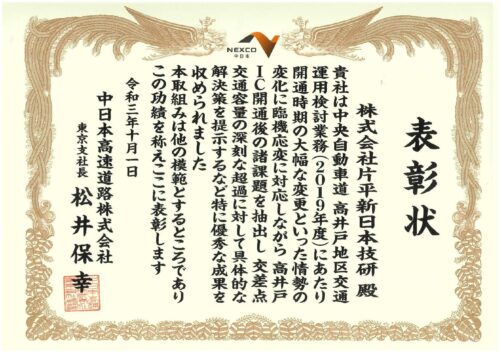 NEXCO
中日本
表彰状
株式会社片平新日本技研 殿
貴社は中央自動車道 高井戸地区交通
運用検討業務(2019年度)にあたり
開通時期の大幅な変更といった情勢の
変化に臨機応変に対応しながら 高井戸
IC開通後の諸課題を抽出し 交差点
交通容量の深刻な超過に対して具体的な
解決策を提示するなど特に優秀な成果を
収められました
本取組みは他の模範とするところであり
この功績を称えここに表彰します
令和三年十月一日
中日本高速道路株式会社
東京支社長 松井保幸